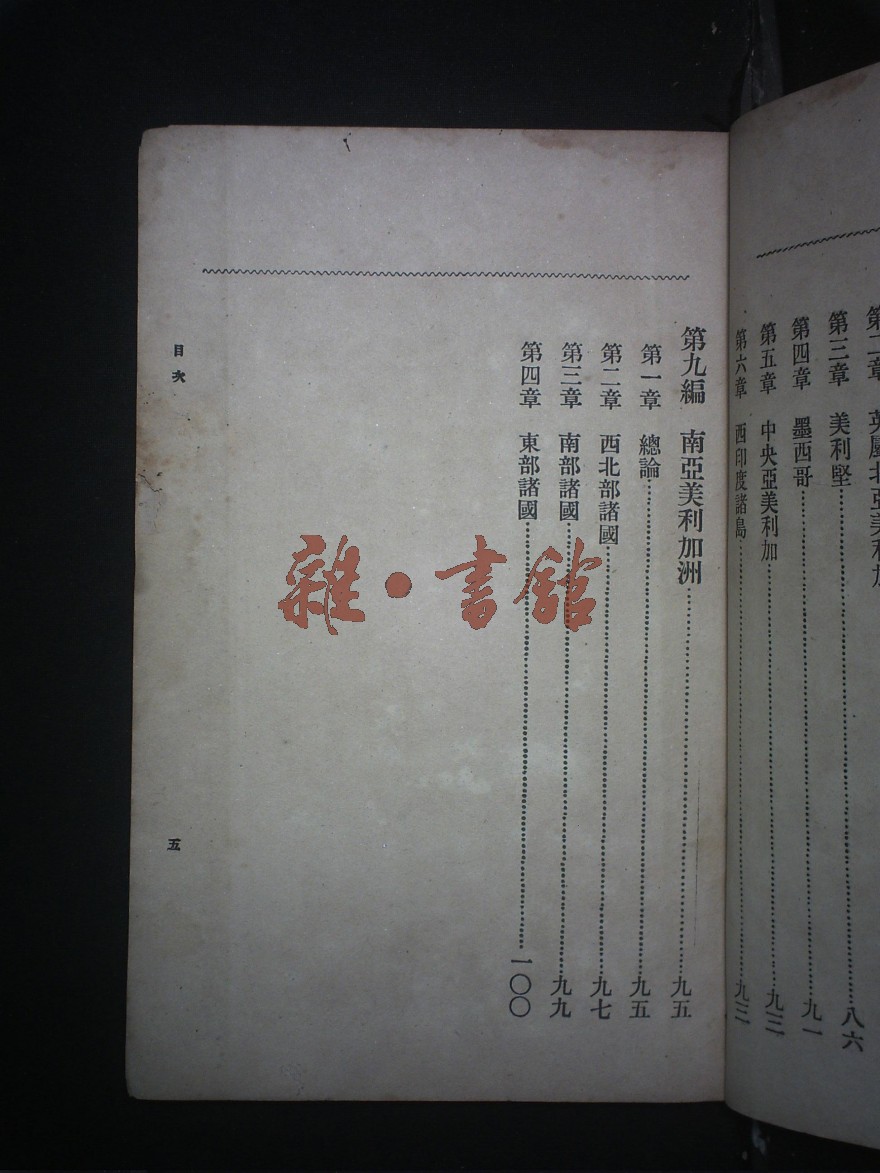 第二章 英屬北亞美利加
第三章 美利堅……八六
第四章 墨西哥……九一
第五章 中央亞美利加……九三
第六章 西印度諸島……九三
第九編 南亞美利加洲……九五
第一章 總論……九五
第二章 西北部諸國……九七
第三章 南部諸國……九九
第四章 東部諸國……一〇〇
目次
五
雜·書館